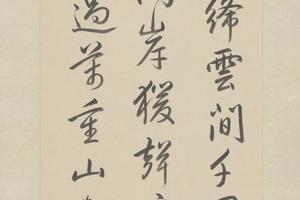 綵雲間千
岸猨聲
過萬重山